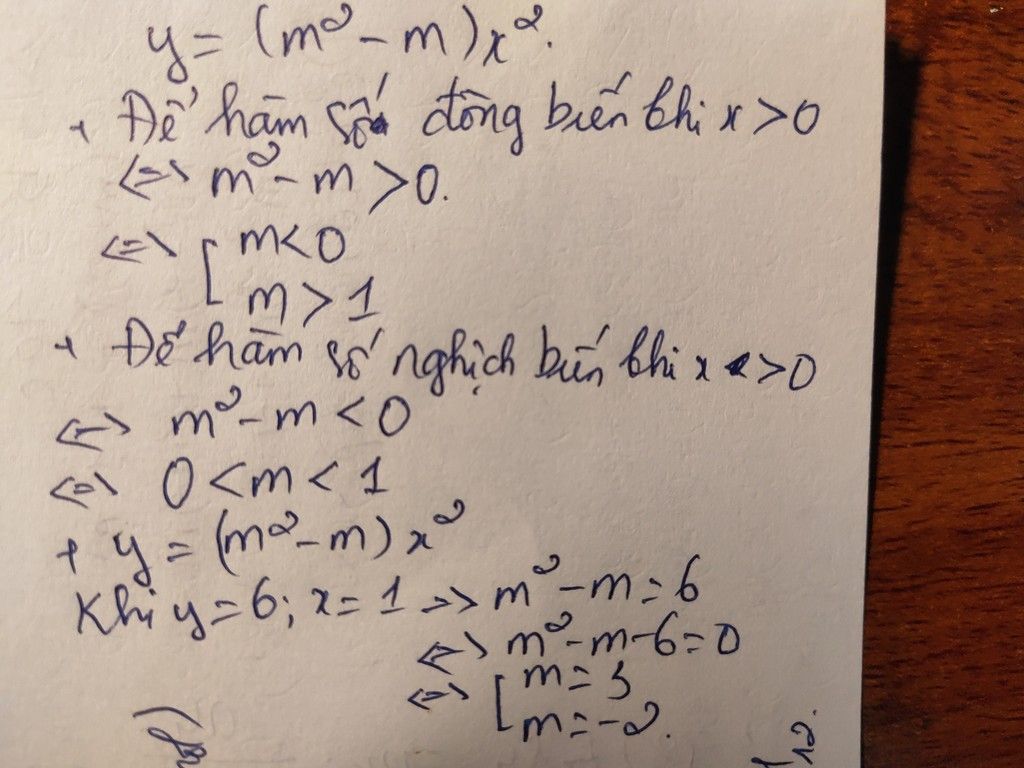 y = (m² - m)x².
+ Để hàm số đồng biến khi x > 0
<=> m² - m > 0.
<=> [ m < 0
m > 1
+ Để hàm số nghịch biến khi x > 0
<=> m² - m < 0
<=> 0 < m < 1
+ y = (m² - m) x²
Khi y = 6; x = 1 => m² - m = 6
<=> m² - m - 6 = 0
<=> [ m = 3
m = -2.